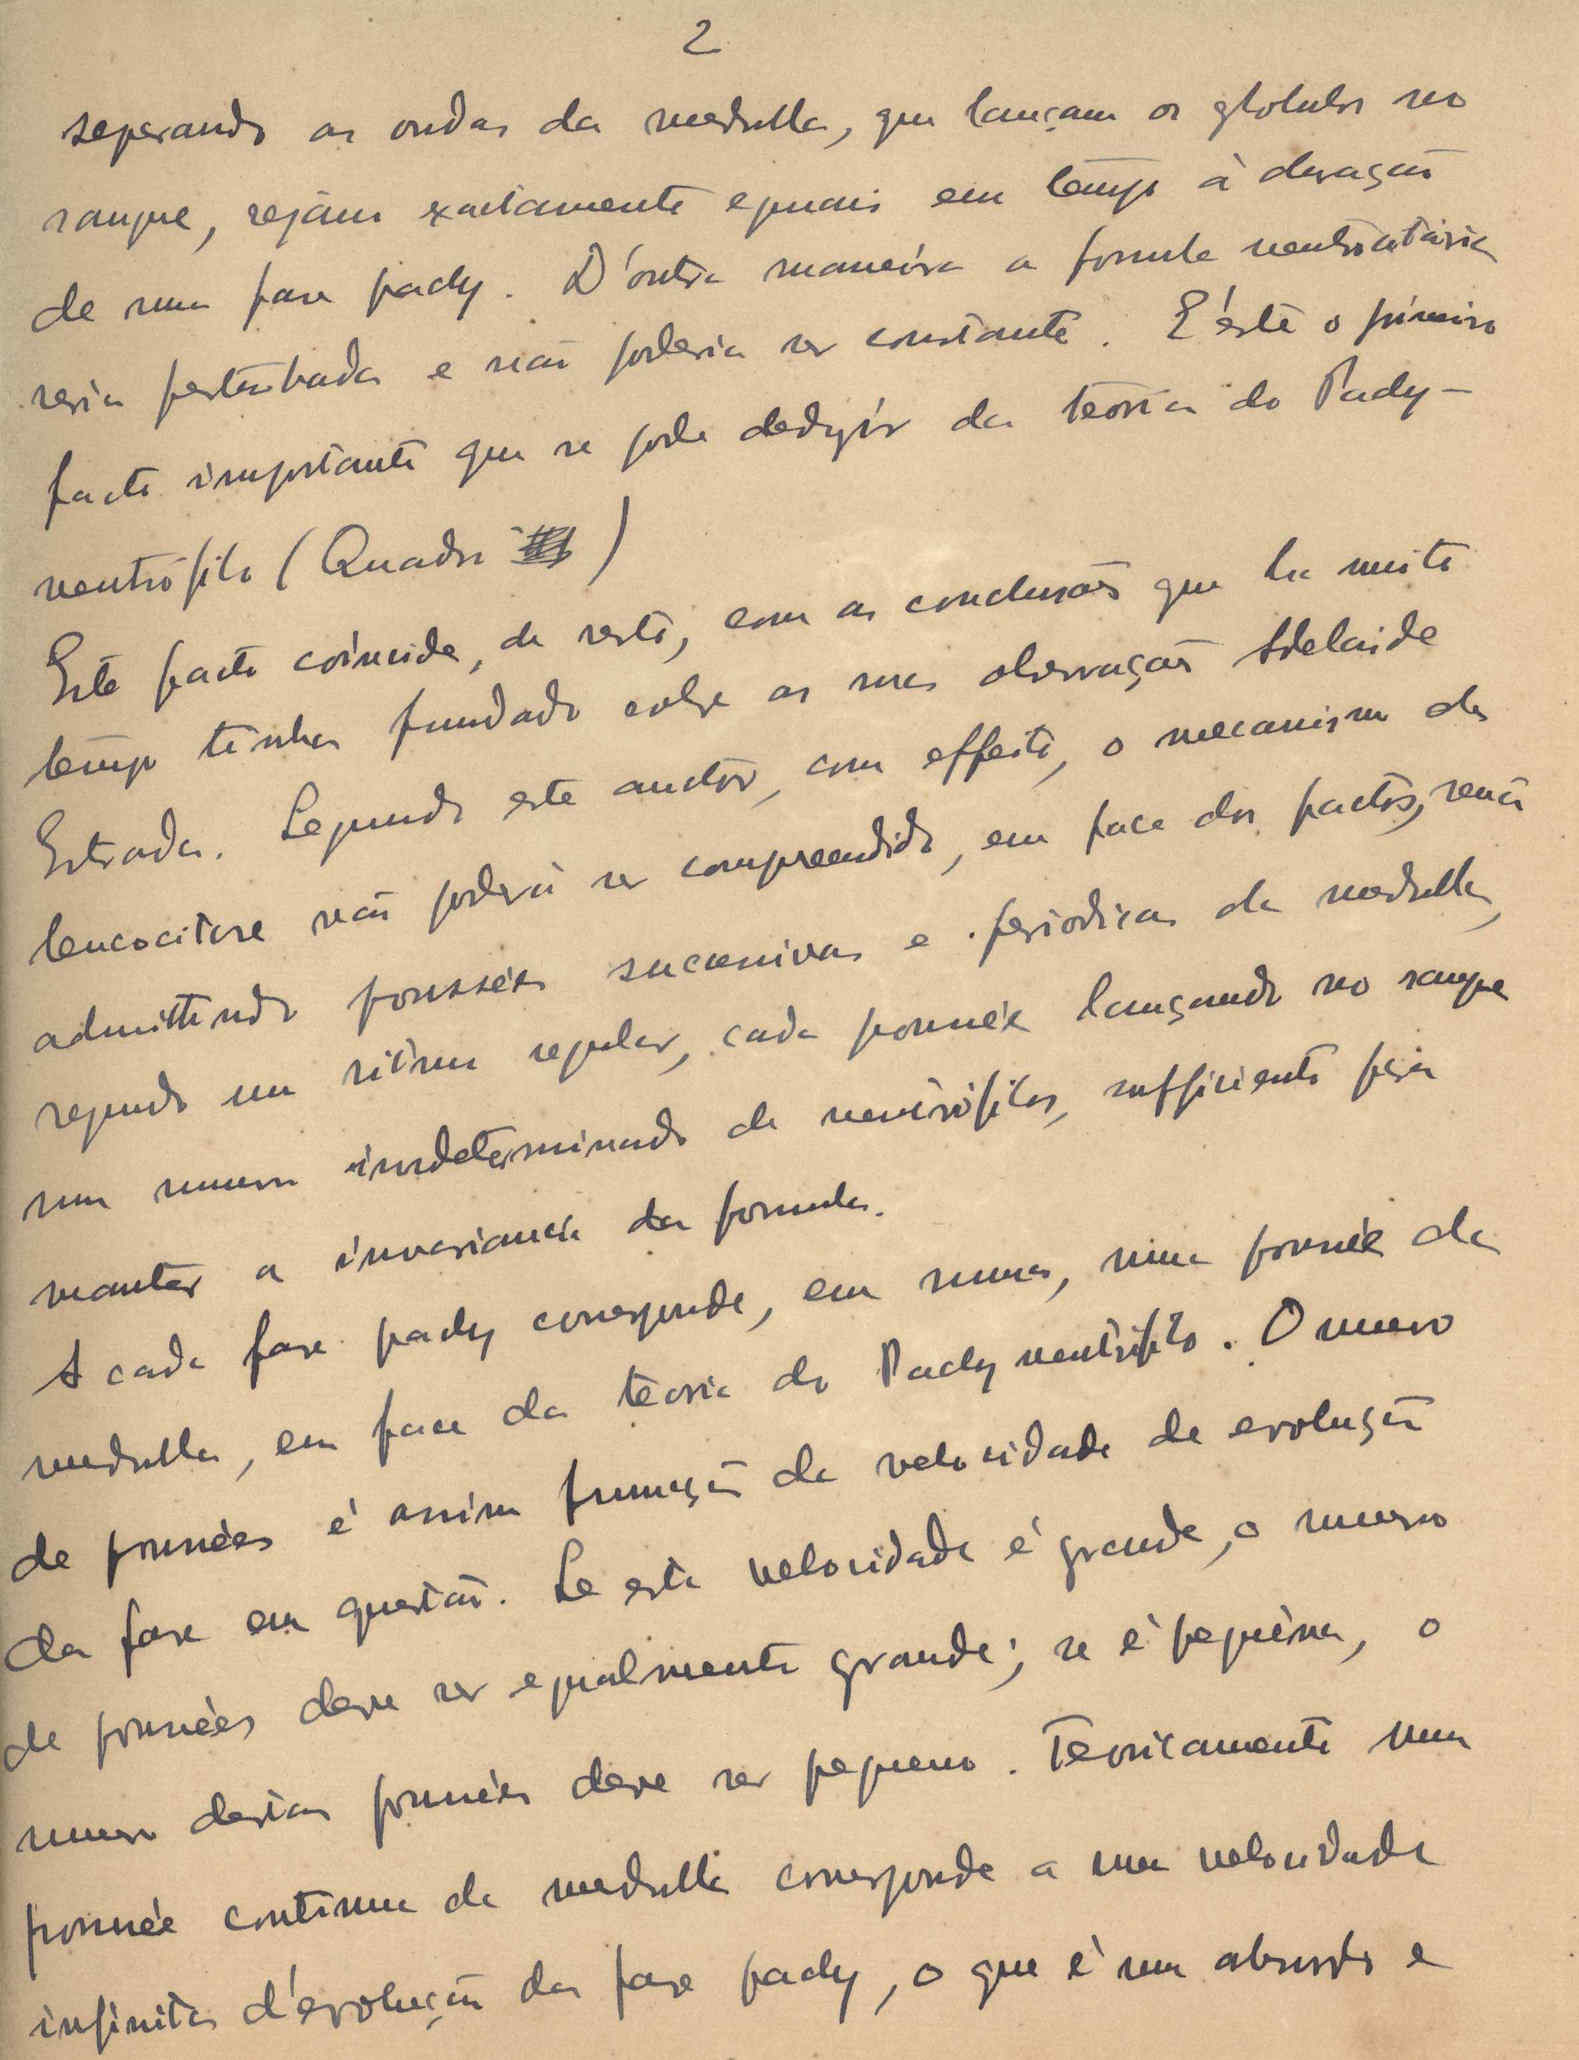 2
separando as ondas da medulla, que lançam os globulos no
sangue, sejam exactamente eguais em tempo à duração
de uma fase pady. D'outra maneira a formula neutrocitaria
seria perturbada e não poderia ser constante. E' éste o primeiro
facto importante que se pode deduzir da teoria do Pady-
neutrófilo (Quadro )
Este facto coincide, de resto, com as conclusões que ha muito
tempo tinha fundado sobre as suas observações Adelaide
Estrada. Segundo este auctor, com effeito, o mecanismo da
leucocitose não poderá ser compreendido, em face dos factos, senão
admittindo poussées successivas e periodicas da medulla,
segundo um ritmo regular, cada poussée lançando no sangue
um numero indeterminado de neutrófilos, sufficiente para
manter a invariancia da formula.
A cada fase pady corresponde, em suma, uma poussée da
medulla, em face da teoria do Pady neutrófilo. O numero
de poussées é assim funcção da velocidade de evolução
da fase em questão. Se esta velocidade é grande, o numero
de poussées deve ser egualmente grande; se é pequêna, o
numero destas poussées deve ser pequeno. Teoricamente uma
poussée continua da medulla corresponde a uma velocidade
infinita d'evolução da fase pady, o que é um absurdo e